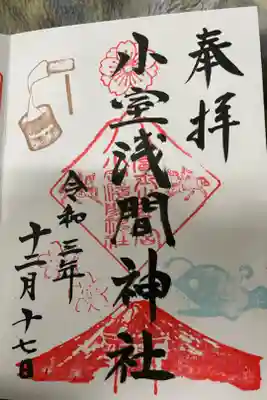 奉拝
小室浅間神社
令和三年
十二月十七日